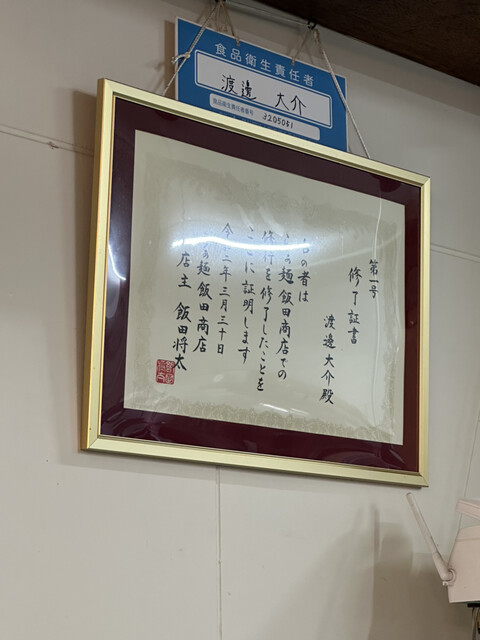 食品衛生責任者
渡邊 大介
食品衛生責任者番号
第一号
修了証書
渡邊大介殿
右の者は
らぁ麺飯田商店での
修行を修了したことを
ここに証明します
令和二年三月三十日
らぁ麺飯田商店
店主 飯田将太